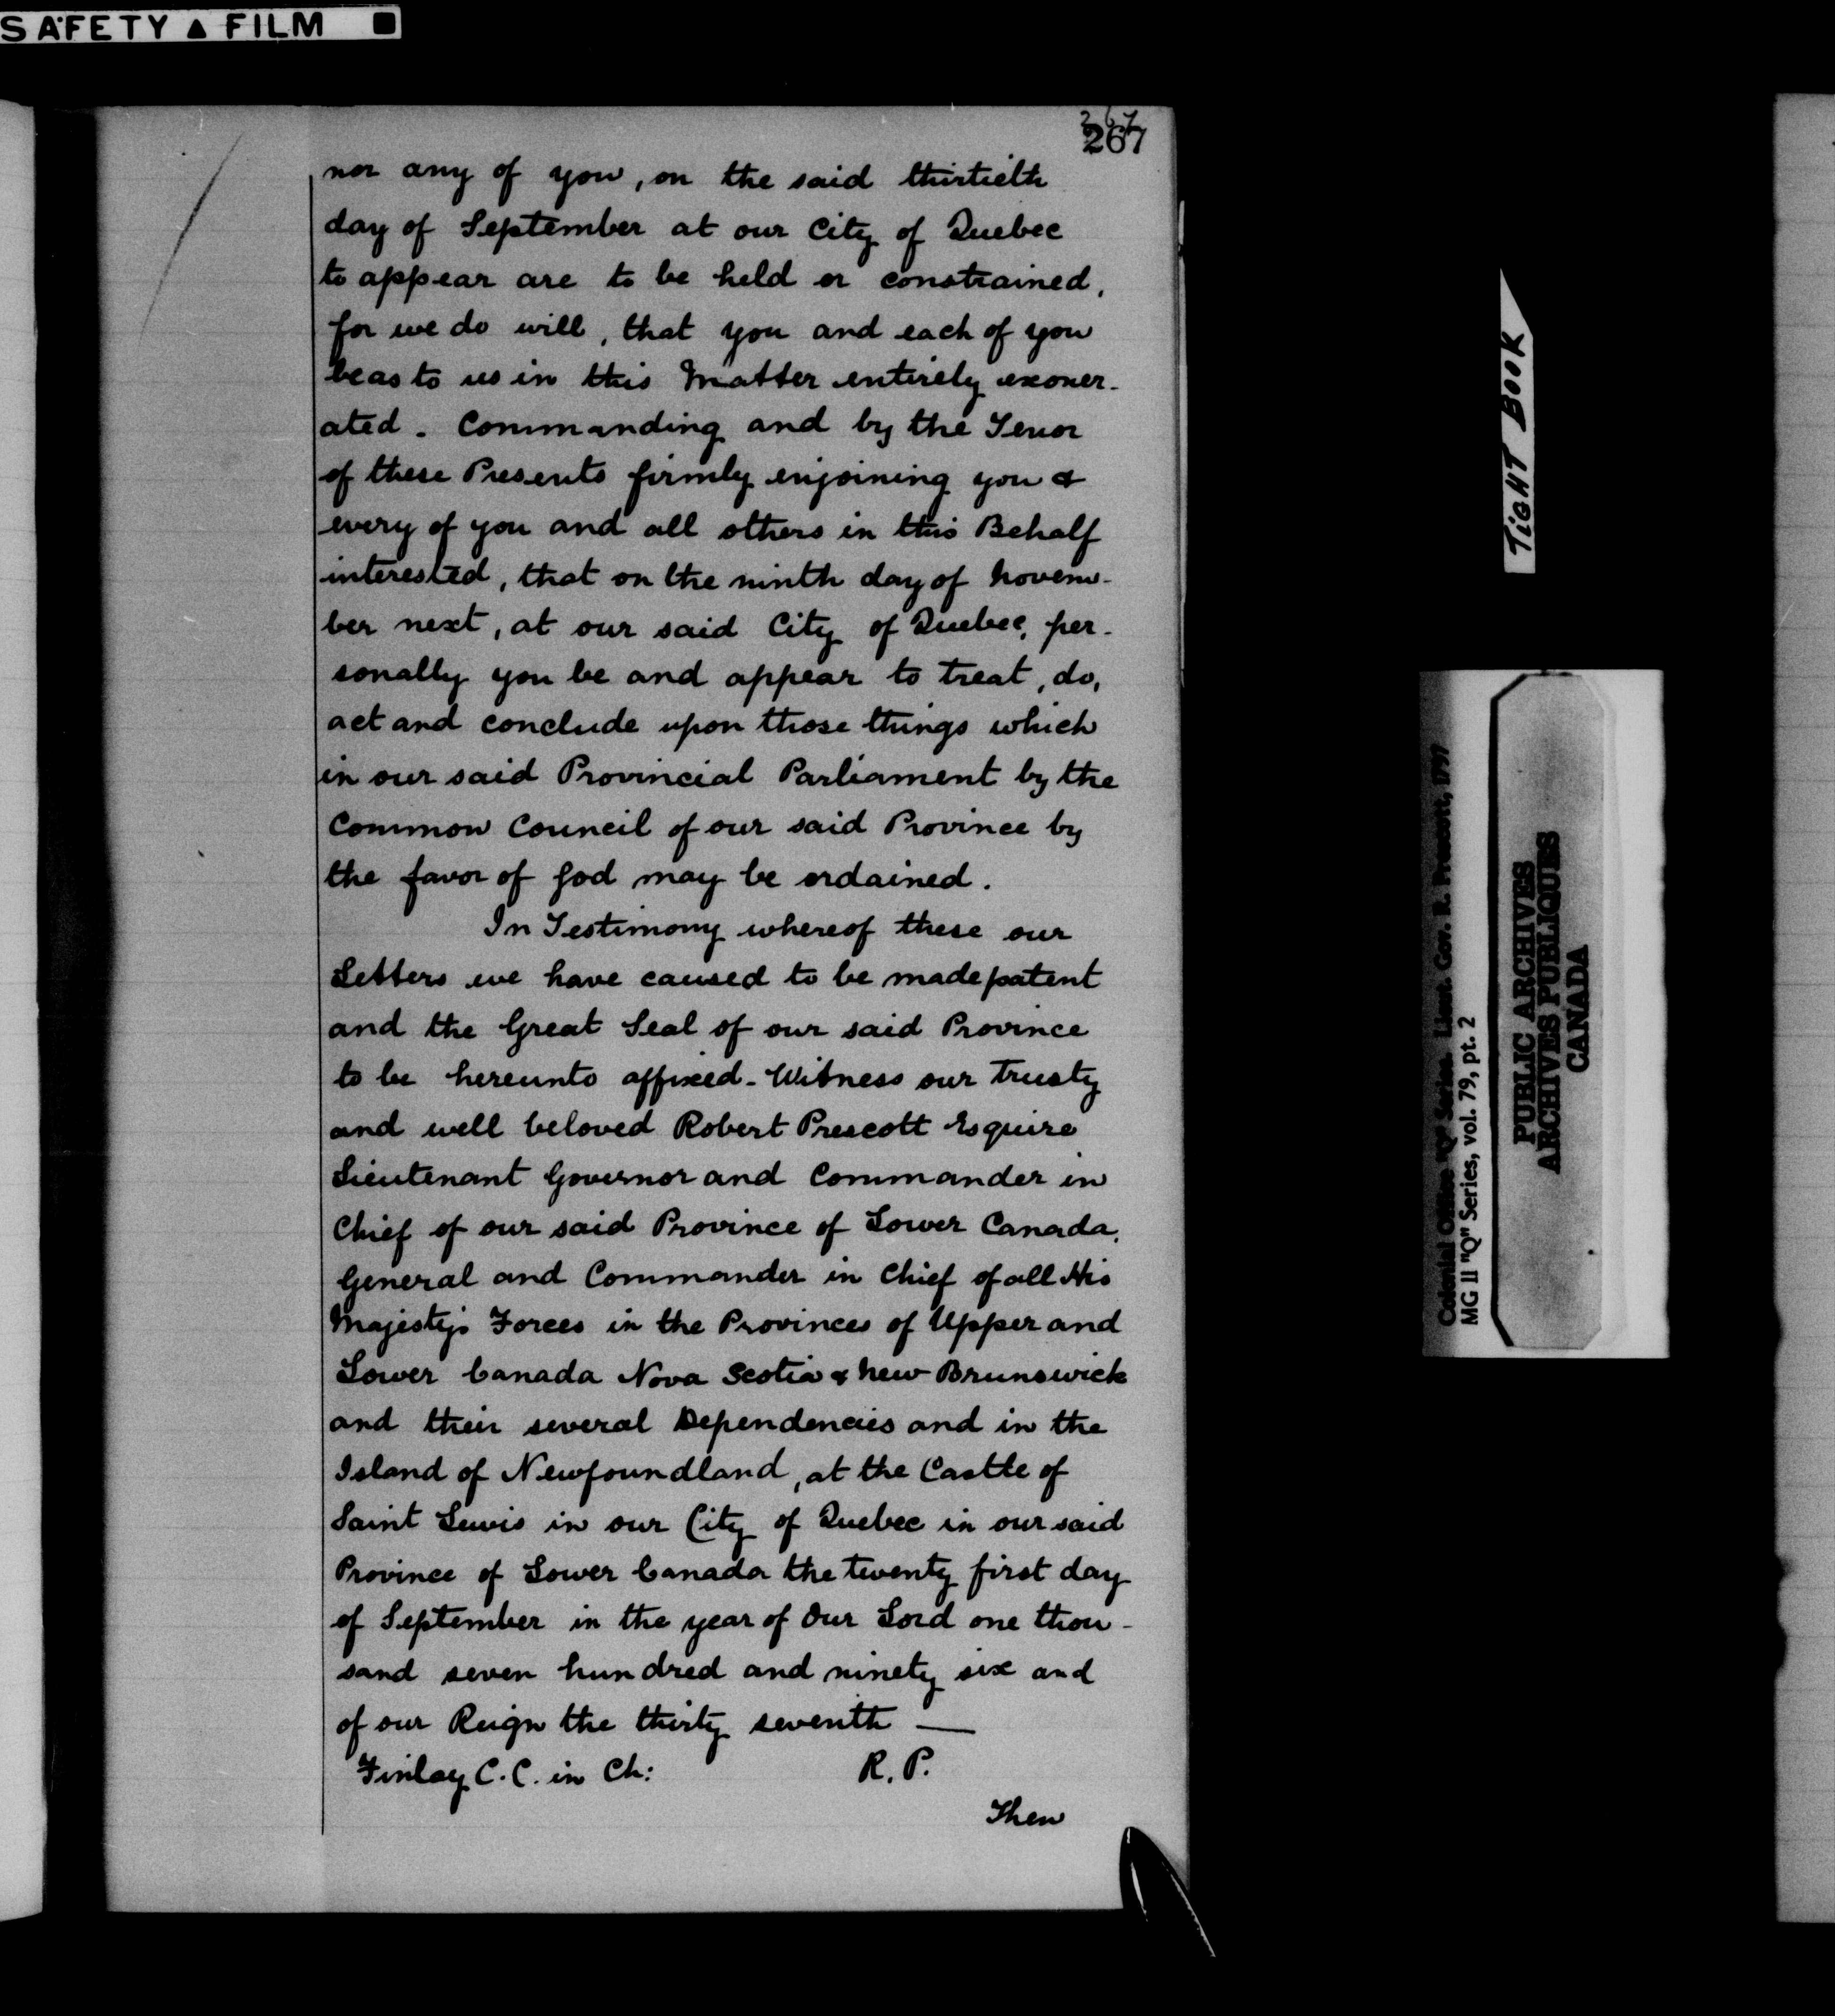 SAFETY ▲ FILM ■
267
267
nor any of you, on the said thirtieth
day of September at our City of Quebec
to appear are to be held or constrained,
for we do will, that you and each of you
be as to us in this Matter entirely exoner-
ated. Commanding and by the Tenor
of these Presents firmly enjoining you &
every of you and all others in this Behalf
interested, that on the ninth day of Novem-
ber next, at our said City of Quebec, per-
sonally you be and appear to treat, do,
act and conclude upon those things which
in our said Provincial Parliament by the
Common Council of our said Province by
the favor of God may be ordained.
In Testimony whereof these our
Letters we have caused to be made patent
and the Great Seal of our said Province
to be hereunto affixed. Witness our Trusty
and well beloved Robert Prescott Esquire
Lieutenant Governor and Commander in
Chief of our said Province of Lower Canada,
General and Commander in Chief of all His
Majesty's Forces in the Provinces of Upper and
Lower Canada Nova Scotia & New Brunswick
and their several Dependencies and in the
Island of Newfoundland, at the Castle of
Saint Lewis in our City of Quebec in our said
Province of Lower Canada the twenty first day
of September in the year of Our Lord one thou-
sand seven hundred and ninety six and
of our Reign the thirty seventh —
Finlay C. C. in Ch: R. P.
Then
TIGHT BOOK
Colonial Office "Q" Series. Lieut. Gov. R. Prescott, 1797
MG II "Q" Series, vol. 79, pt. 2
PUBLIC ARCHIVES
ARCHIVES PUBLIQUES
CANADA